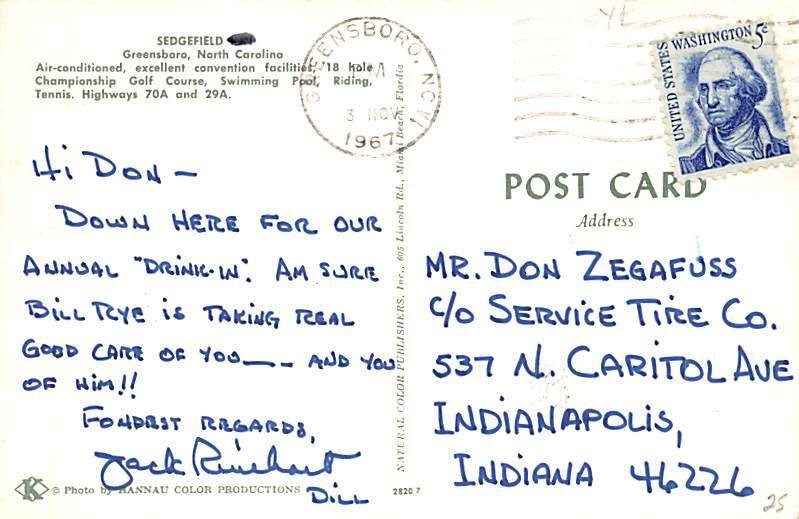 SEDGEFIELD
Greensboro, North Carolina
Air-conditioned, excellent convention facilities, 18 hole
Championship Golf Course, Swimming Pool, Riding,
Tennis. Highways 70A and 29A.
GREENSBORO, NC
M
3 NOV
1967
UNITED STATES
WASHINGTON 5c
Hi DON –
DOWN HERE FOR OUR
ANNUAL "DRINK-IN". AM SURE
BILL RYE IS TAKING REAL
GOOD CARE OF YOU—— AND YOU
OF HIM!!
FONDEST REGARDS,
Jack Rinehart
DILL
© Photo by HANNAU COLOR PRODUCTIONS
28207
NATURAL COLOR PUBLISHERS, Inc., 605 Lincoln Rd., Miami Beach, Flordia
POST CARD
Address
MR. DON ZEGAFUSS
c/o SERVICE TIRE CO.
537 N. CAPITOL AVE
INDIANAPOLIS,
INDIANA 46226
25